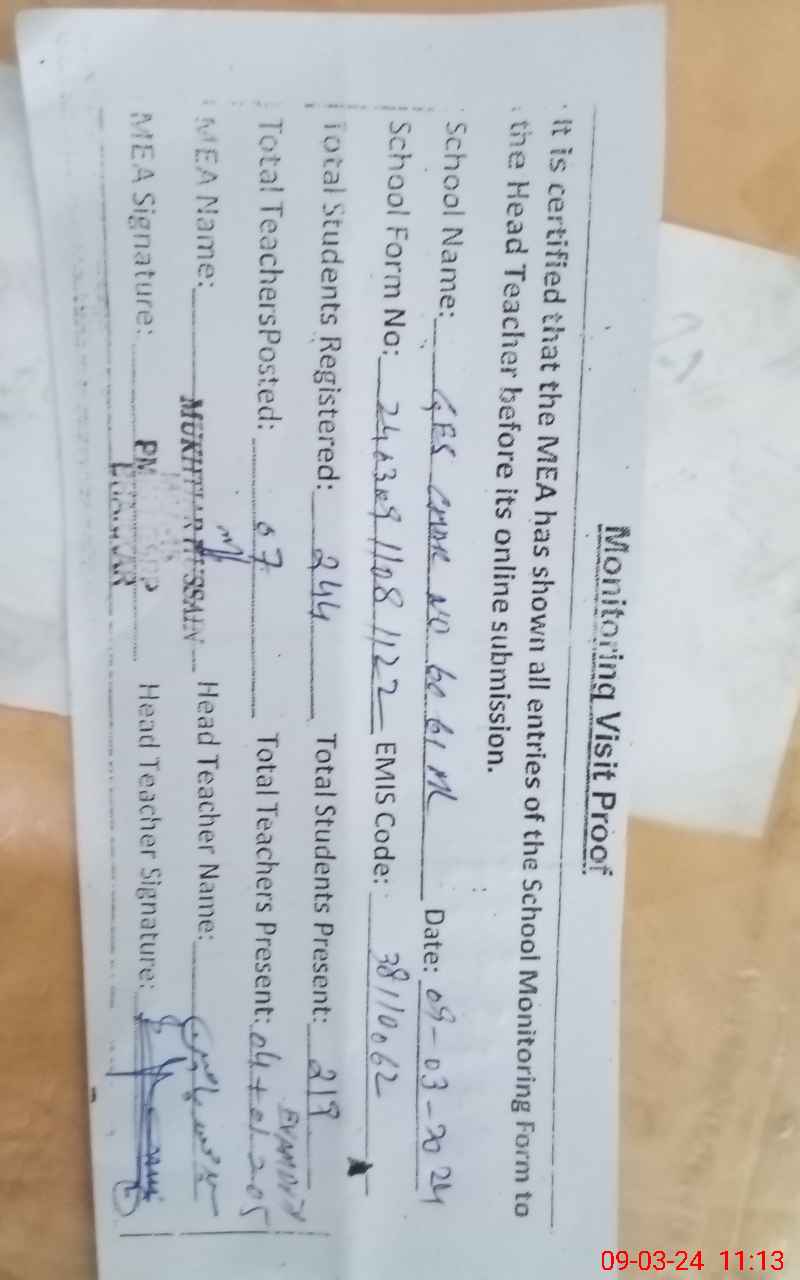 Monitoring Visit Proof
It is certified that the MEA has shown all entries of the School Monitoring Form to
the Head Teacher before its online submission.
School Name: GES CHAK NO 60 61 ML Date: 09-03-2024
School Form No: 240309 1108 1122 EMIS Code: 38110062
Total Students Registered: 244 Total Students Present: 219
Total TeachersPosted: 07 Total Teachers Present: 04+01=05
MEA Name: MUKHTIAR HUSSAIN Head Teacher Name:
MEA Signature: Head Teacher Signature:
09-03-24 11:13